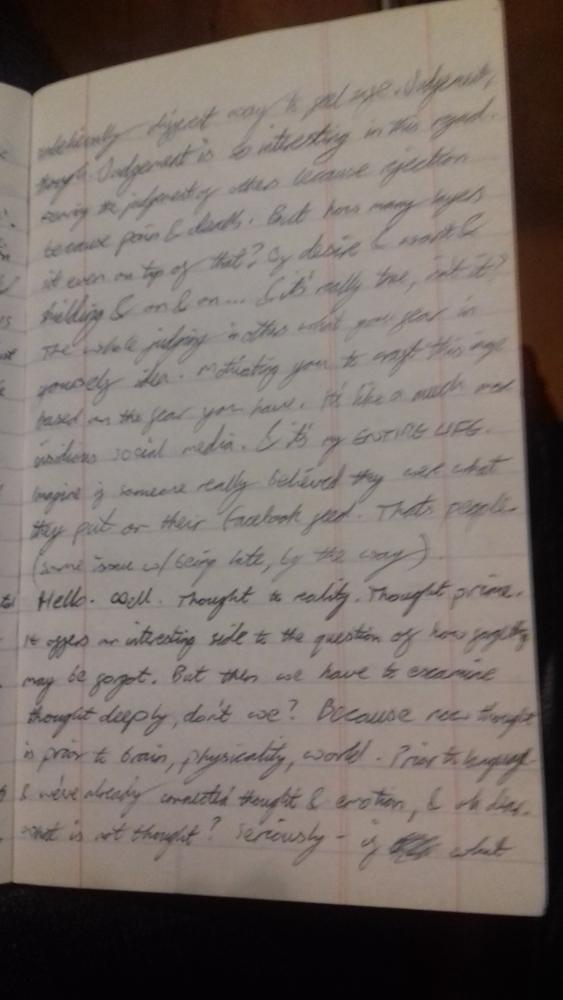 different way to feel safe. Judgement,
though. Judgement is so interesting in this regard.
the judgment of others because rejection
because pain & death. But how many layers
sit even on top of that? Of desire & &
shielding & on & on... & it's really true, isn't it?
The whole judging in others what you fear in
yourself idea. Motivating you to craft this image
based on the fear you have. It's like a much more
insidious social media. & it's my ENTIRE LIFE.
Imagine if someone really believed they were what
they put on their Facebook feed. That's people.
(same issue w/ being late, by the way)
Hello. Well. Thought to reality. Thought prime.
It offers an interesting side to the question of how
may be forgot. But then we have to examine
thought deeply, don't we? Because now thought
is prior to brain, physicality, world. Prior to language
& we've already connected thought & emotion, & oh dear.
what is not thought? Seriously - if what